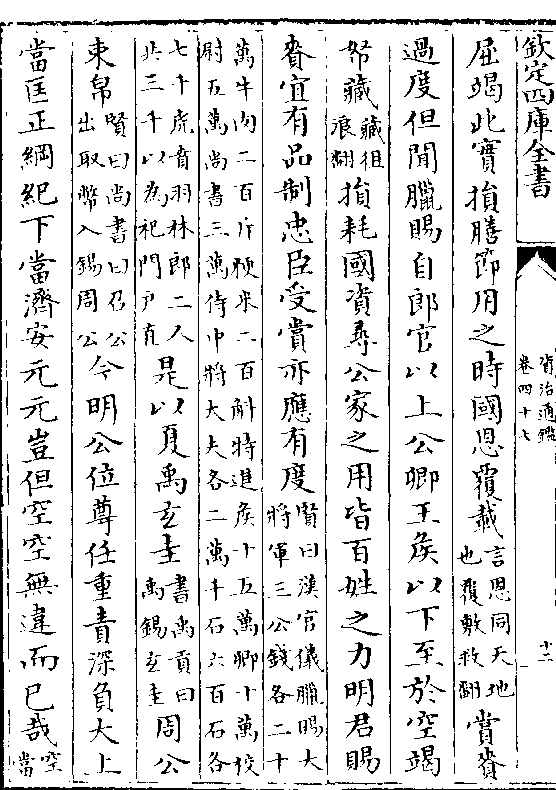 欽定四庫全書
資治通鑑
卷四十七
十二
屈竭此實損膳節用之時國恩覆載言恩同天地
也覆敷救翻賞賚
過度但聞臘賜自郎官以上公卿王侯以下至於空竭
帑藏藏徂
浪翻損耗國資尋公家之用皆百姓之力明君賜
賚宜有品制忠臣受賞亦應有度賢曰漢官儀臘賜大
將軍三公錢各二十
萬牛肉二百斤粳米二百斛特進侯十五萬卿十萬校
尉五萬尚書三萬侍中將大夫各二萬千石六百石各
七千虎賁羽林郎二人
共三千以為祀門户直是以夏禹玄圭書禹貢曰
禹錫玄圭周公
束帛賢曰尚書曰召公
出取幣入錫周公今明公位尊任重責深負大上
當匡正綱紀下當濟安元元豈但空空無違而已哉空
當